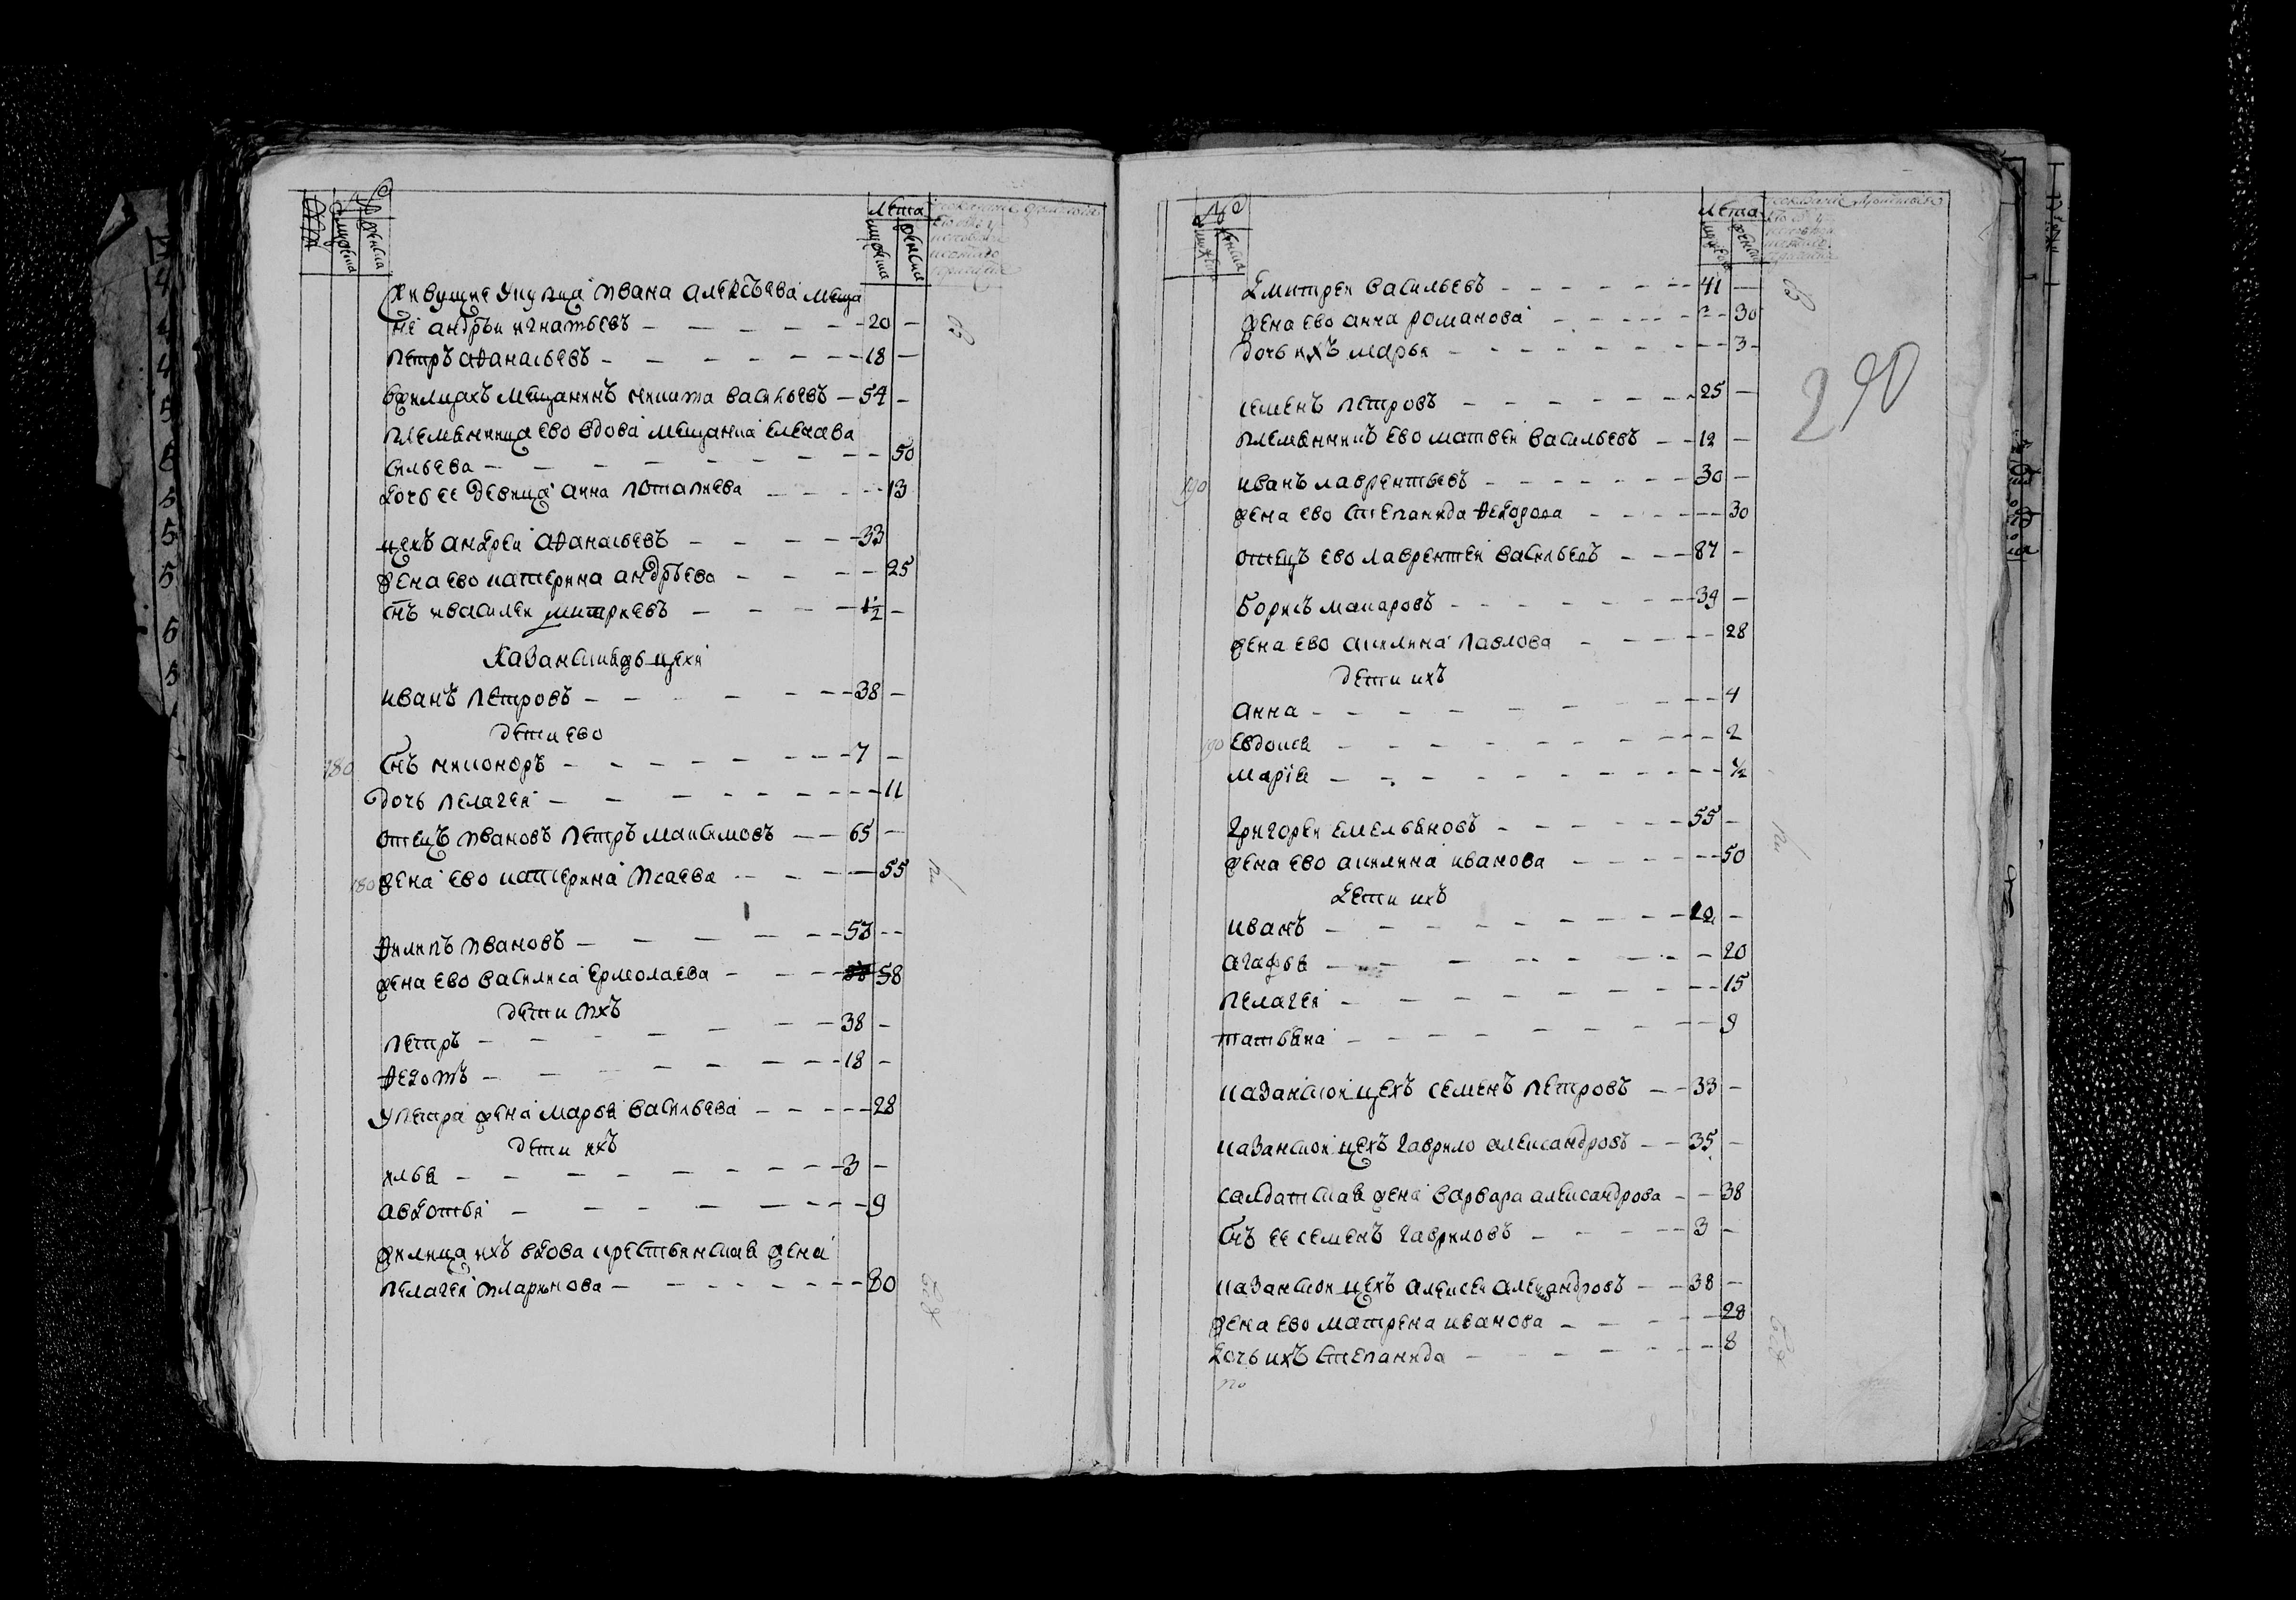 №
мужеска
женска
лета
мужеска
женска
живущие у купца ивана алексѣева меща
не андрѣи игнатьевъ — 20 —
петръ аѳанасьевъ — 18 —
мещанинъ никита васильевъ — 54 —
племенница ево вдова мещанка елена ва
сильева — 50
дочь ее девица анна потапиева — 13
цехъ андреи аѳанасьевъ — 33
жена ево катерина андрѣева — 25
снъ василеи митриевъ — 1½ —
казанския цехи
иванъ петровъ — 38 —
дети ево
180 снъ никоноръ — 7 —
дочь пелагеи — 11
отецъ ивановъ петръ максимовъ — 65 —
180 жена ево катерина исаева — 55
ѳилипъ ивановъ — 53 —
жена ево василиса ермолаева — 58
дети ихъ
петръ — 38 —
ѳедотъ — 18 —
у петра жена марья васильева — 28
дети ихъ
илья — 3 —
авдотьи — 9
жилица ихъ вдова крестьянская жена
пелагеи иларионова — 80
№
мужеска
женска
лета
мужеска
женска
дмитреи васильевъ — 41 —
жена ево анна романова — 30
дочь ихъ марья — 3
290
семенъ петровъ — 25 —
племянникъ ево матвеи васильевъ — 12 —
190 иванъ лаврентьевъ — 30 —
жена ево степанида ѳедорова — 30
отецъ ево лаврентеи васильевъ — 87 —
борисъ макаровъ — 39 —
жена ево акилина павлова — 28
дети ихъ
анна — 4
190 евдокея — 2
марія — ½
григореи емельяновъ — 55 —
жена ево акилина иванова — 50
дети ихъ
иванъ — 12 —
агафья — 20
пелагеи — 15
татьяна — 9
казанскои цехъ семенъ петровъ — 33 —
казанскои цехъ гаврило александровъ — 35 —
салдатская жена варвара александрова — 38
снъ ее семенъ гавриловъ — 3 —
казанскои цехъ алексеи александровъ — 38 —
жена ево матрена иванова — 28
дочь ихъ степанида — 8